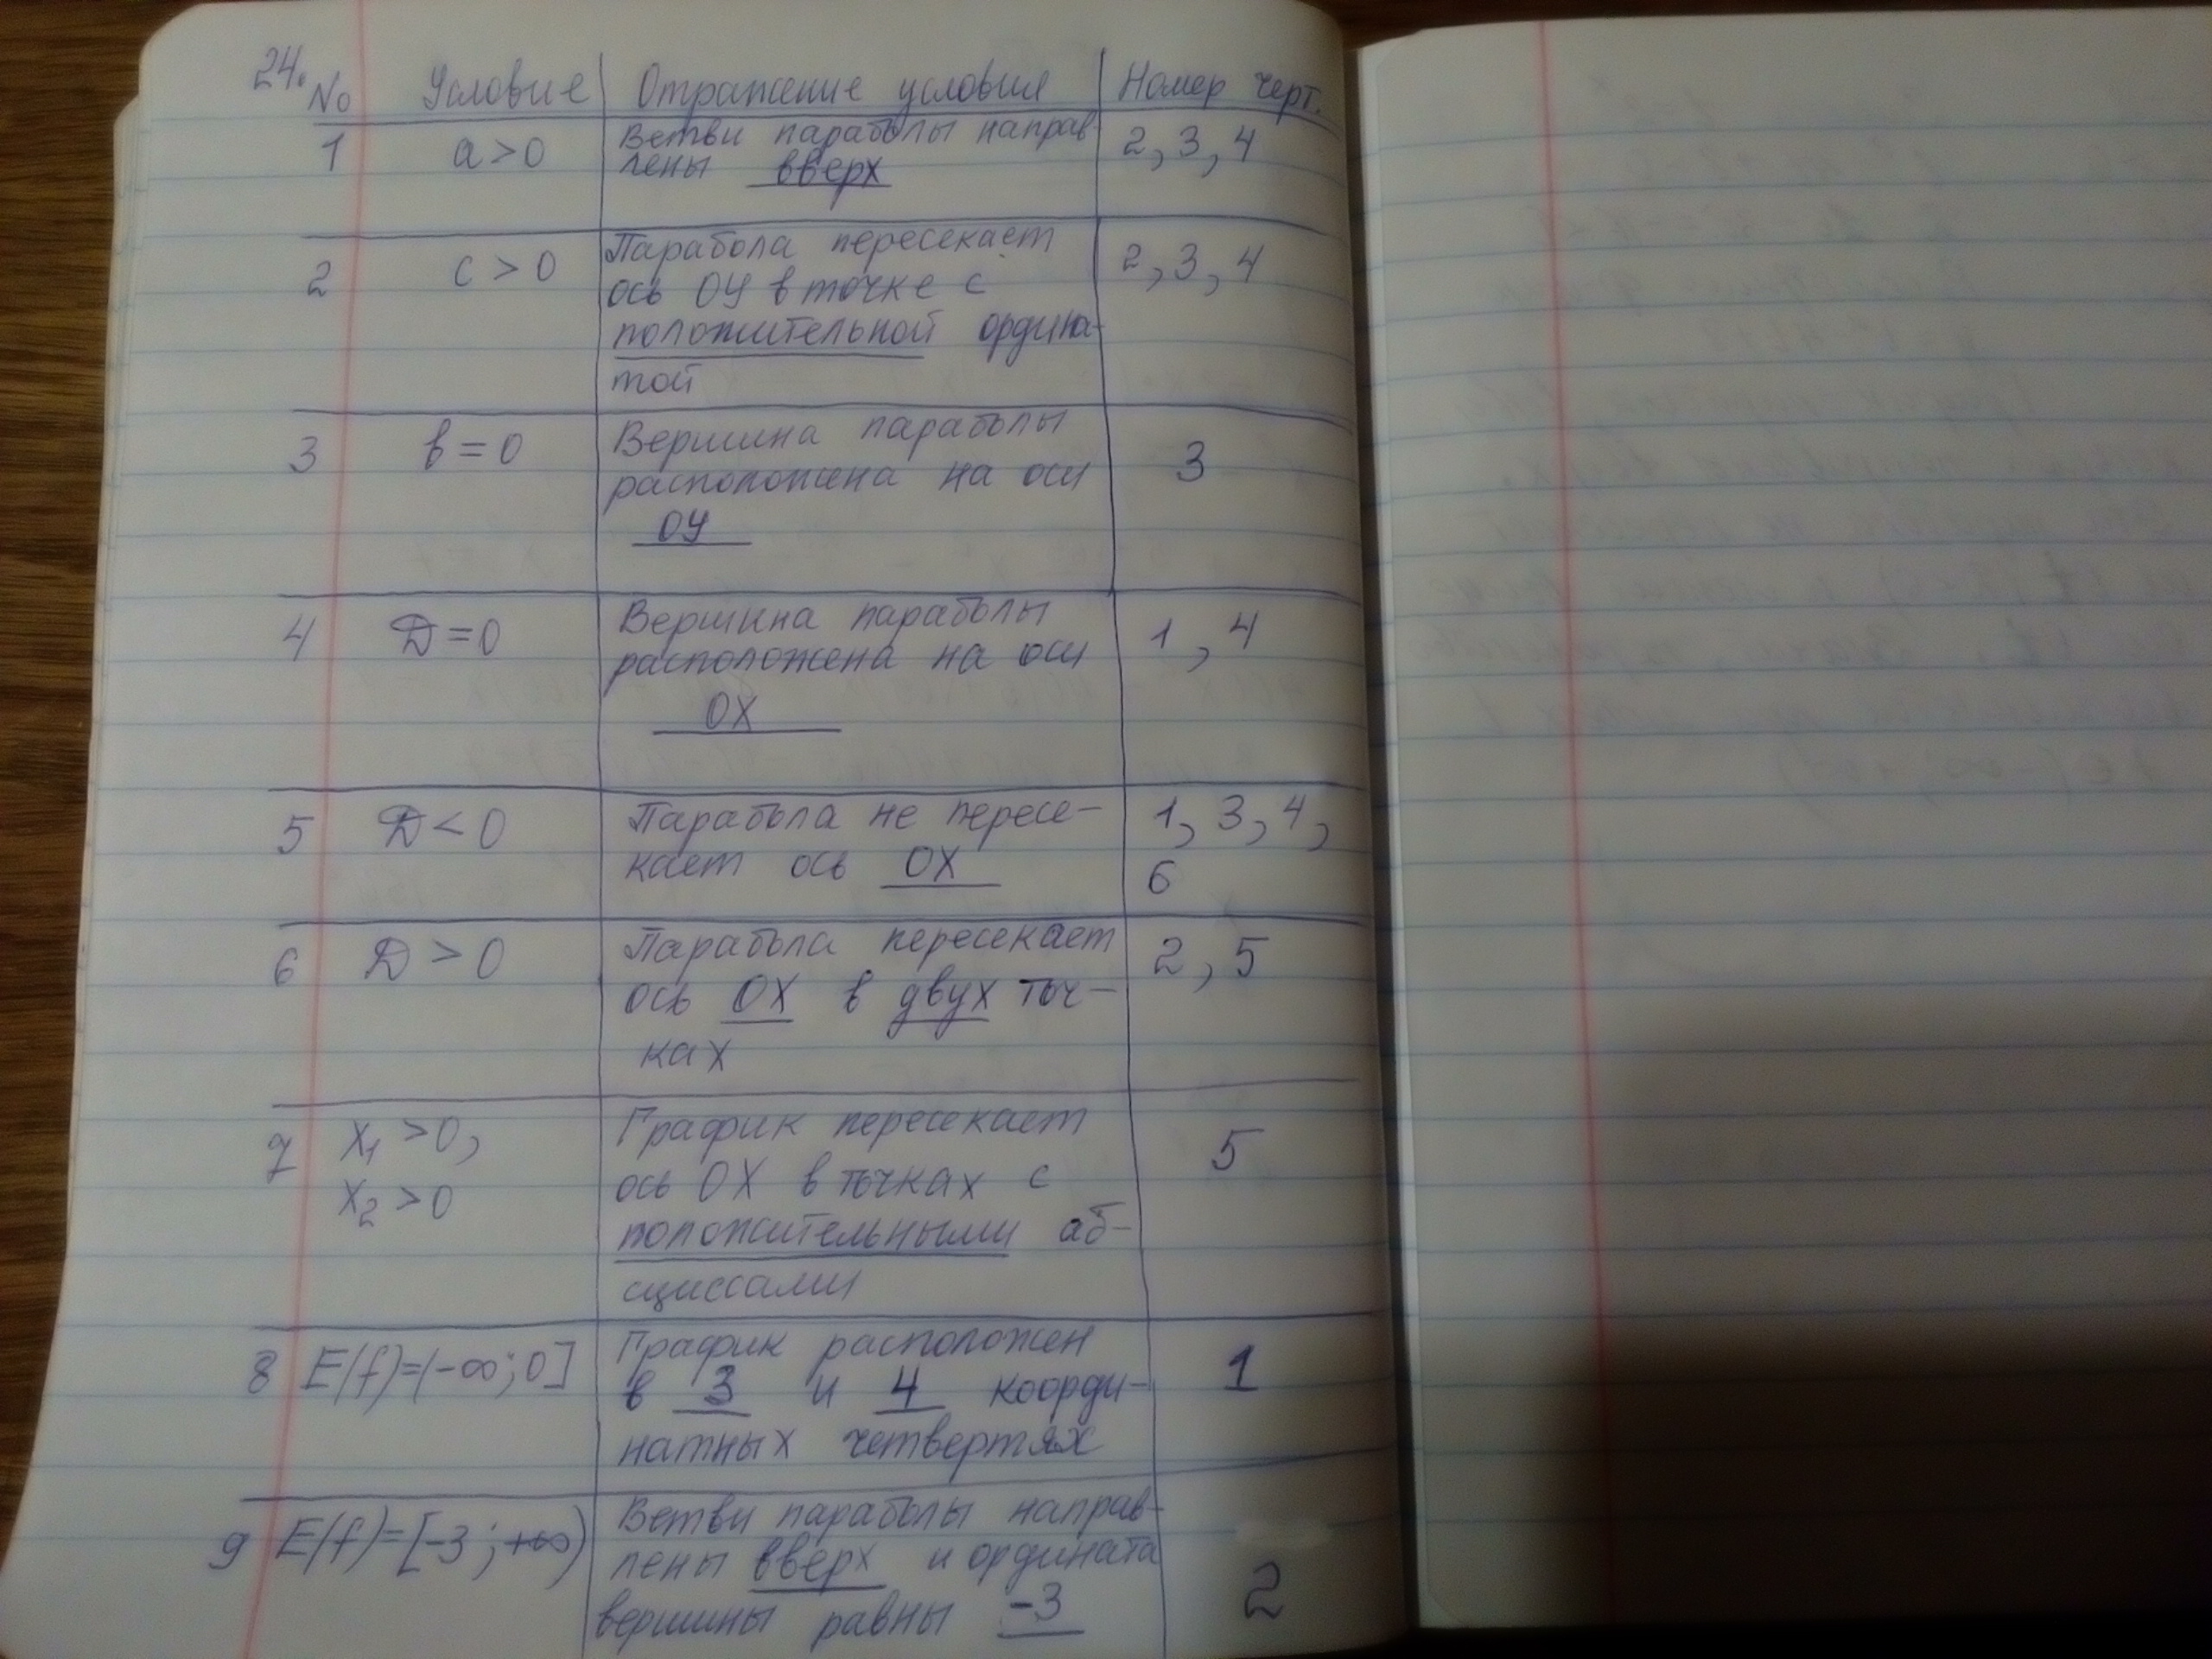 24.
№ Условие Отражение условия Номер черт.
1 a > 0 Ветви параболы направ- 2, 3, 4
лены вверх
2 c > 0 Парабола пересекает 2, 3, 4
ось ОУ в точке с
положительной ордина-
той
3 b = 0 Вершина параболы 3
расположена на оси
ОУ
4 D = 0 Вершина параболы 1, 4
расположена на оси
ОХ
5 D < 0 Парабола не пересе- 1, 3, 4,
кает ось ОХ 6
6 D > 0 Парабола пересекает 2, 5
ось ОХ в двух точ-
ках
7 x₁ > 0, График пересекает 5
x₂ > 0 ось ОХ в точках с
положительными аб-
сциссами
8 E(f)=(-∞; 0] График расположен 1
в 3 и 4 коорди-
натных четвертях
9 E(f)=[-3; +∞) Ветви параболы направ-
лены вверх и ордината 2
вершины равны -3